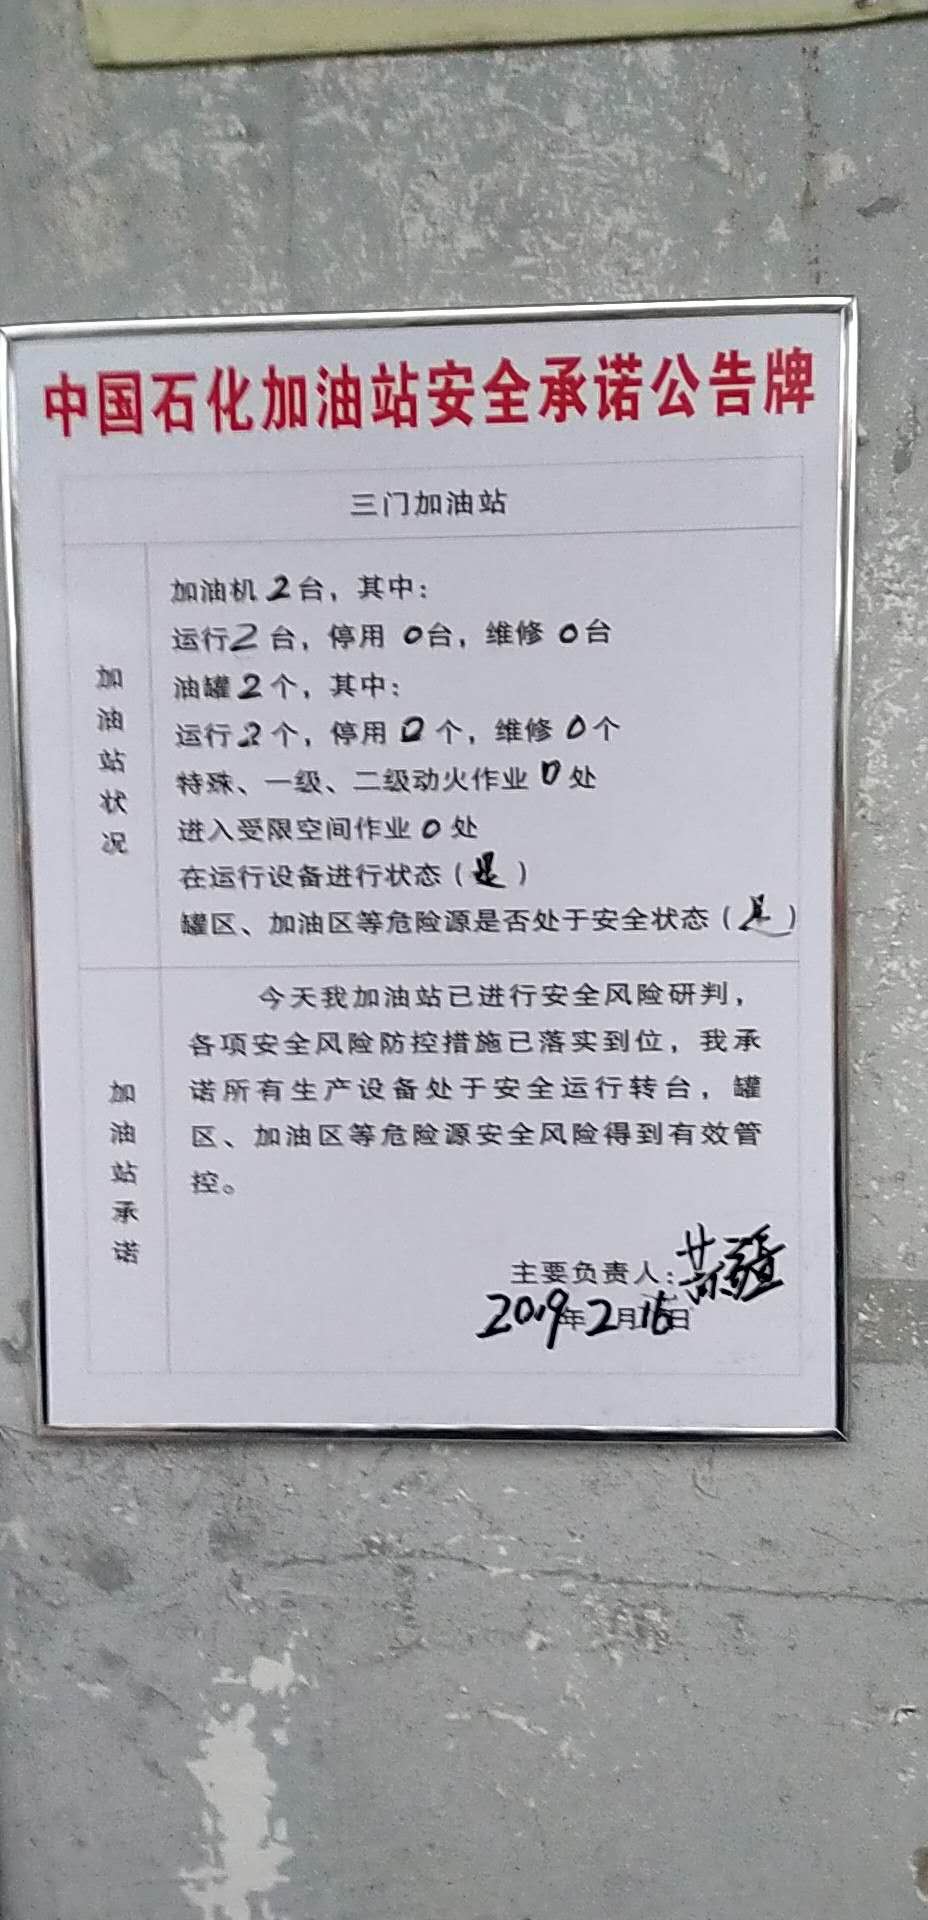 中国石化加油站安全承诺公告牌
三门加油站
加油站状况
加油机 2 台，其中：
运行 2 台，停用 0 台，维修 0 台
油罐 2 个，其中：
运行 2 个，停用 0 个，维修 0 个
特殊、一级、二级动火作业 0 处
进入受限空间作业 0 处
在运行设备进行状态（是）
罐区、加油区等危险源是否处于安全状态（是）
加油站承诺
今天我加油站已进行安全风险研判，
各项安全风险防控措施已落实到位，我承
诺所有生产设备处于安全运行转台，罐
区、加油区等危险源安全风险得到有效管
控。
主要负责人：
2019年2月16日